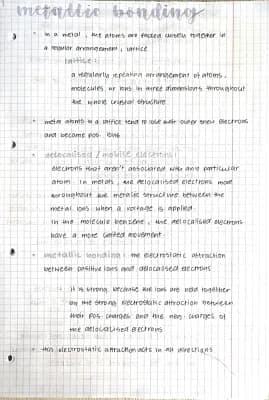 metallic bonding
• in a metal, the atoms are packed closely together in
a regular arrangement, lattice
lattice:
a regularly repeating arrangement of atoms,
molecules or ions in three dimensions throughout
the whole crystal structure
• metal atoms in a lattice tend to lose their outer shell electrons
and become pos. ions
• delocalised / mobile electrons:
electrons that aren't associated with any particular
atom. In metals, the delocalised electrons move
throughout the metallic structure between the
metal ions when a voltage is applied.
In the molecule benzene, the delocalised electrons
have a more limited movement.
• metallic bonding: the electrostatic attraction
between positive ions and delocalised electrons
• it is strong because the ions are held together
by the strong electrostatic attraction between
their pos. charges and the neg. charges of
the delocalised electrons
• this electrostatic attraction acts in all directions